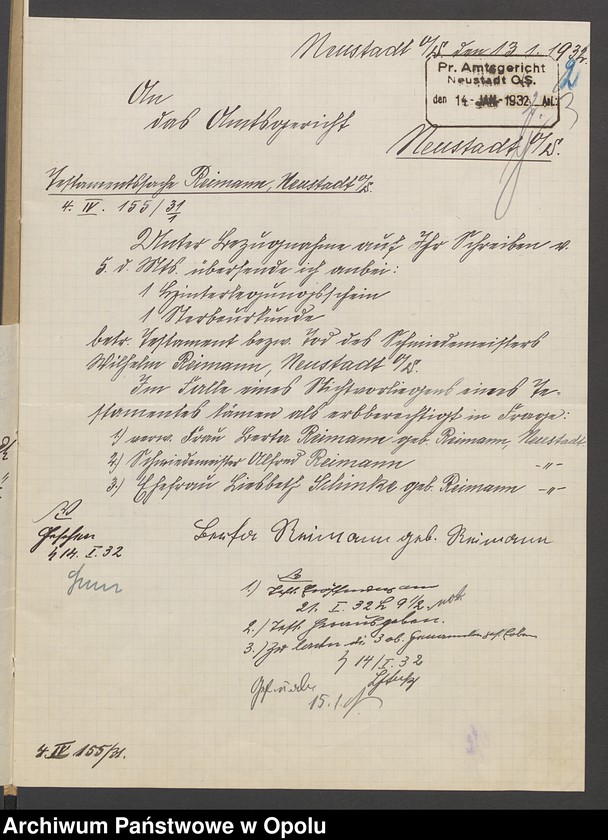 Neustadt O/S. den 13.1.1932.
2
Pr. Amtsgericht
Neustadt O/S.
den 14. JAN. 1932
An
das Amtsgericht
Neustadt O/S.
Testamentssache Reimann, Neustadt O/S.
4. IV. 155/31
Unter Bezugnahme auf Ihr Schreiben v.
5. d. Mts. übersende ich anbei:
1 Hinterlegungsschein
1 Sterbeurkunde
betr. Testament bezw. Tod des Schmiedemeisters
Wilhelm Reimann, Neustadt O/S.
Im Falle eines Nichtvorliegens eines Te-
stamentes kämen als erbberechtigt in Frage:
1) verw. Frau Berta Reimann geb. Reimann, Neustadt
2) Schmiedemeister Alfred Reimann -"-
3) Ehefrau Liesbeth Schinke geb. Reimann -"-
Berta Reimann geb. Reimann
Gesehen
14. I. 32
1.) Test. Eröffnung am
21. I. 32 9 1/2
2.) Test. herausgeben.
3.) Zu laden die 3 ob. Genannten
14/I. 32
15.1.
4. IV 155/31.
Archiwum Państwowe w Opolu